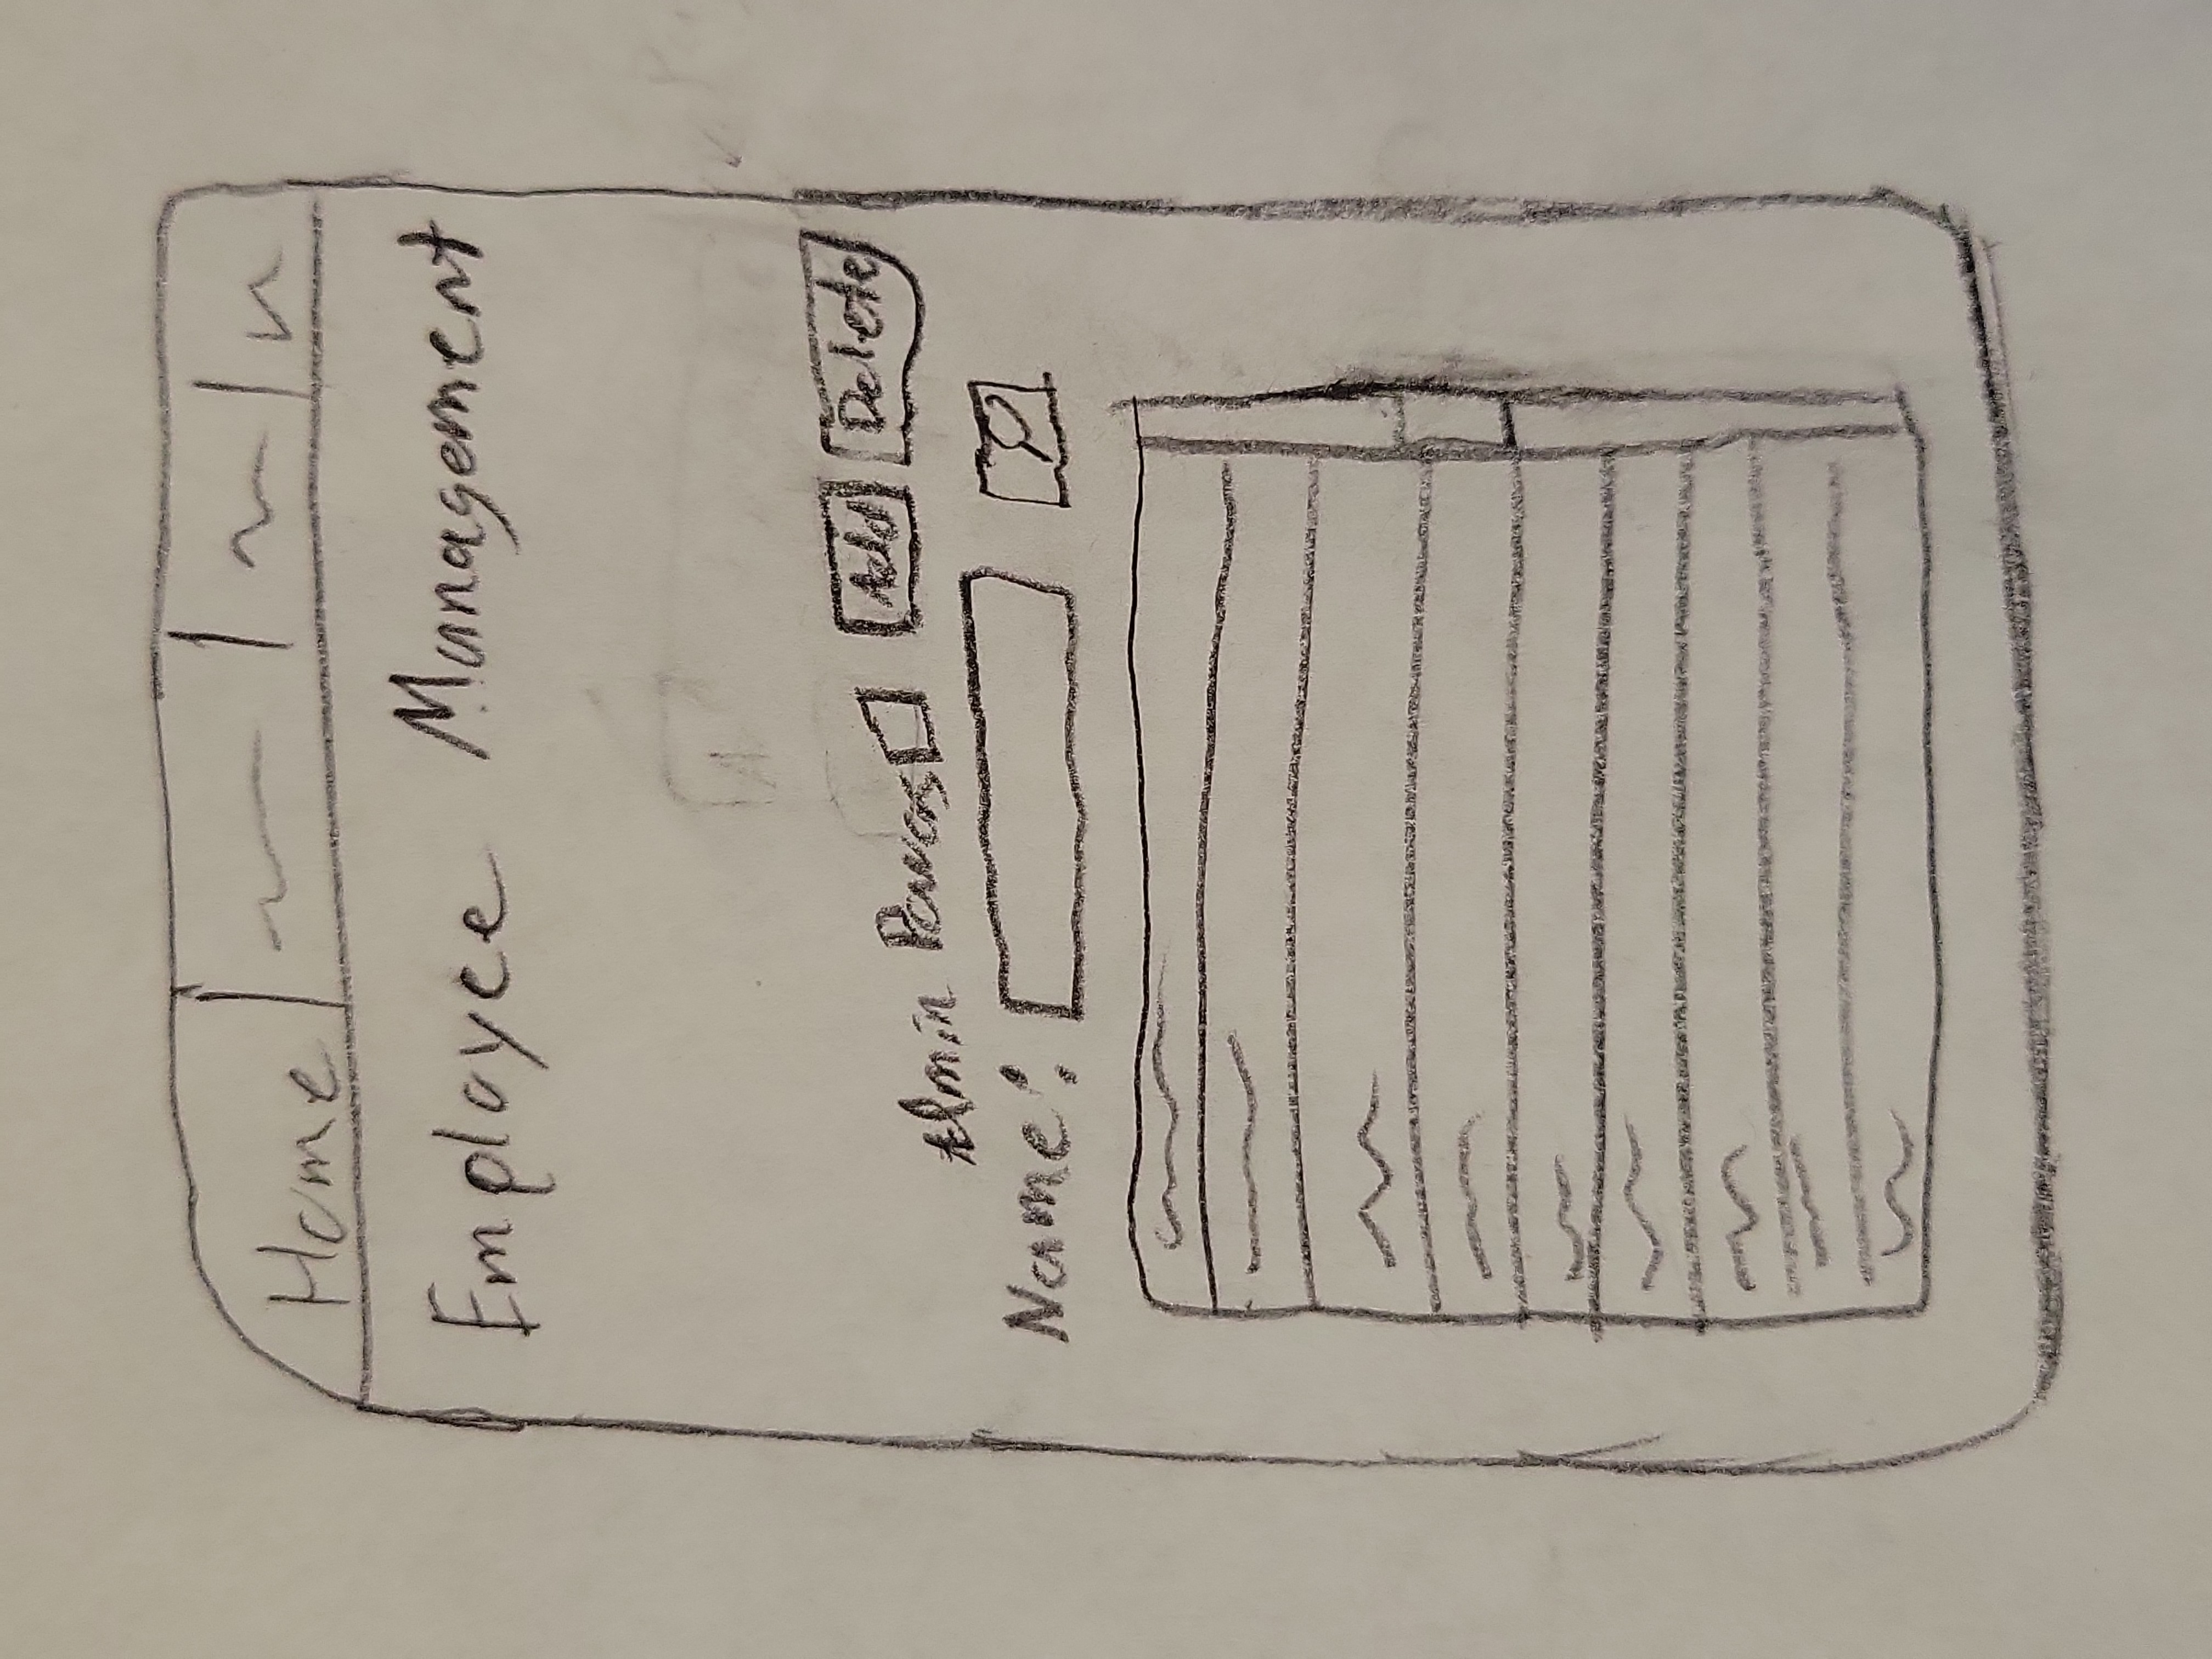 Home
Employee Management
Admin Powers Add Delete
Name: